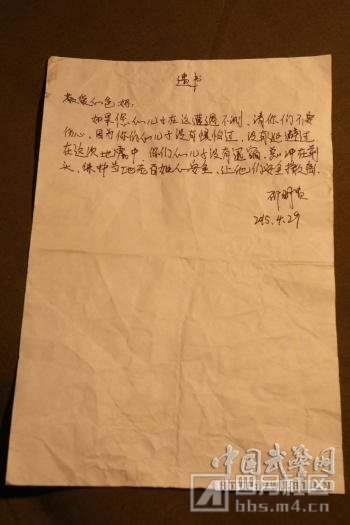 遗书
敬爱的爸妈:
如果您们儿子在这遭遇不测,请你们不要
伤心,因为你们的儿子没有惧怕过,没有逃避过
在这次地震中,你们的儿子没有退缩,总冲在前
头,保护当地老百姓的安全,让他们安全撤离。
邵明贵
2015.4.29
中国武警网
四月社区
bbs.m4.cn